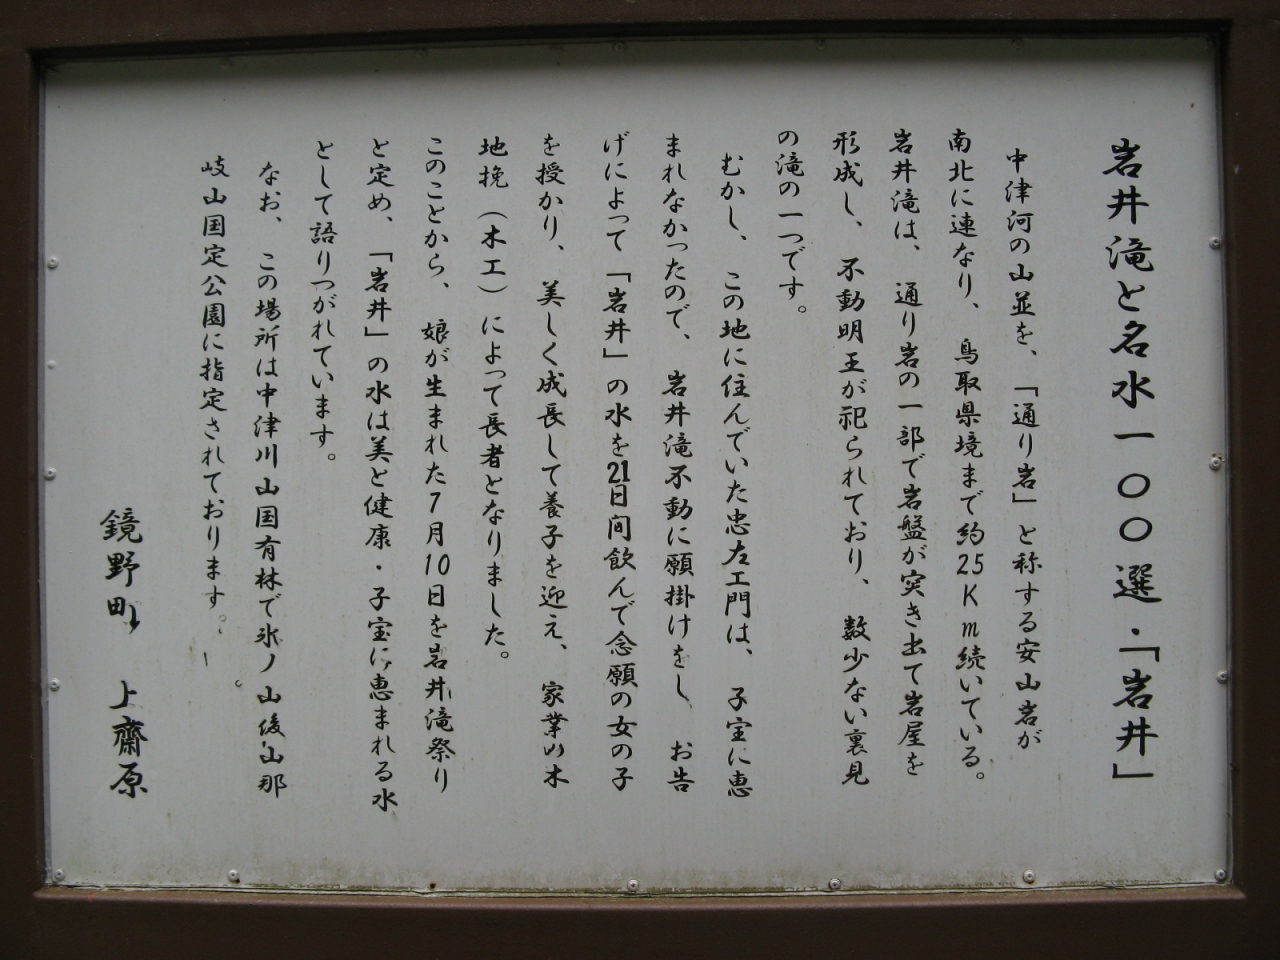 岩井滝と名水一〇〇選・「岩井」
中津河の山並を、「通り岩」と称する安山岩が
南北に連なり、鳥取県境まで約25Km続いている。
岩井滝は、通り岩の一部で岩盤が突き出て岩屋を
形成し、不動明王が祀られており、数少ない裏見
の滝の一つです。
むかし、この地に住んでいた忠左エ門は、子宝に恵
まれなかったので、岩井滝不動に願掛けをし お告
げによって「岩井」の水を21日间飲んで念願の女の子
を授かり、美しく成長して養子を迎え、家業の木
地挽（木工）によって長者となりました。
このことから、娘が生まれた7月10日を岩井滝祭り
と定め、「岩井」の水は美と健康・子宝に恵まれる水
として語りつがれています。
なお、この場所は中津川山国有林で氷ノ山後山那
岐山国定公園に指定されております。
鏡野町 上齋原